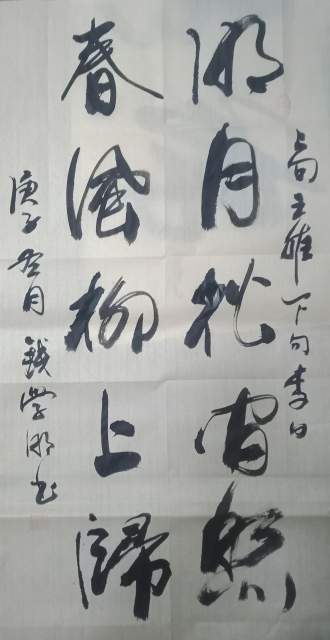 明月松間照
上句王維下句李白
春風柳上歸
庚子冬月 錢学明书